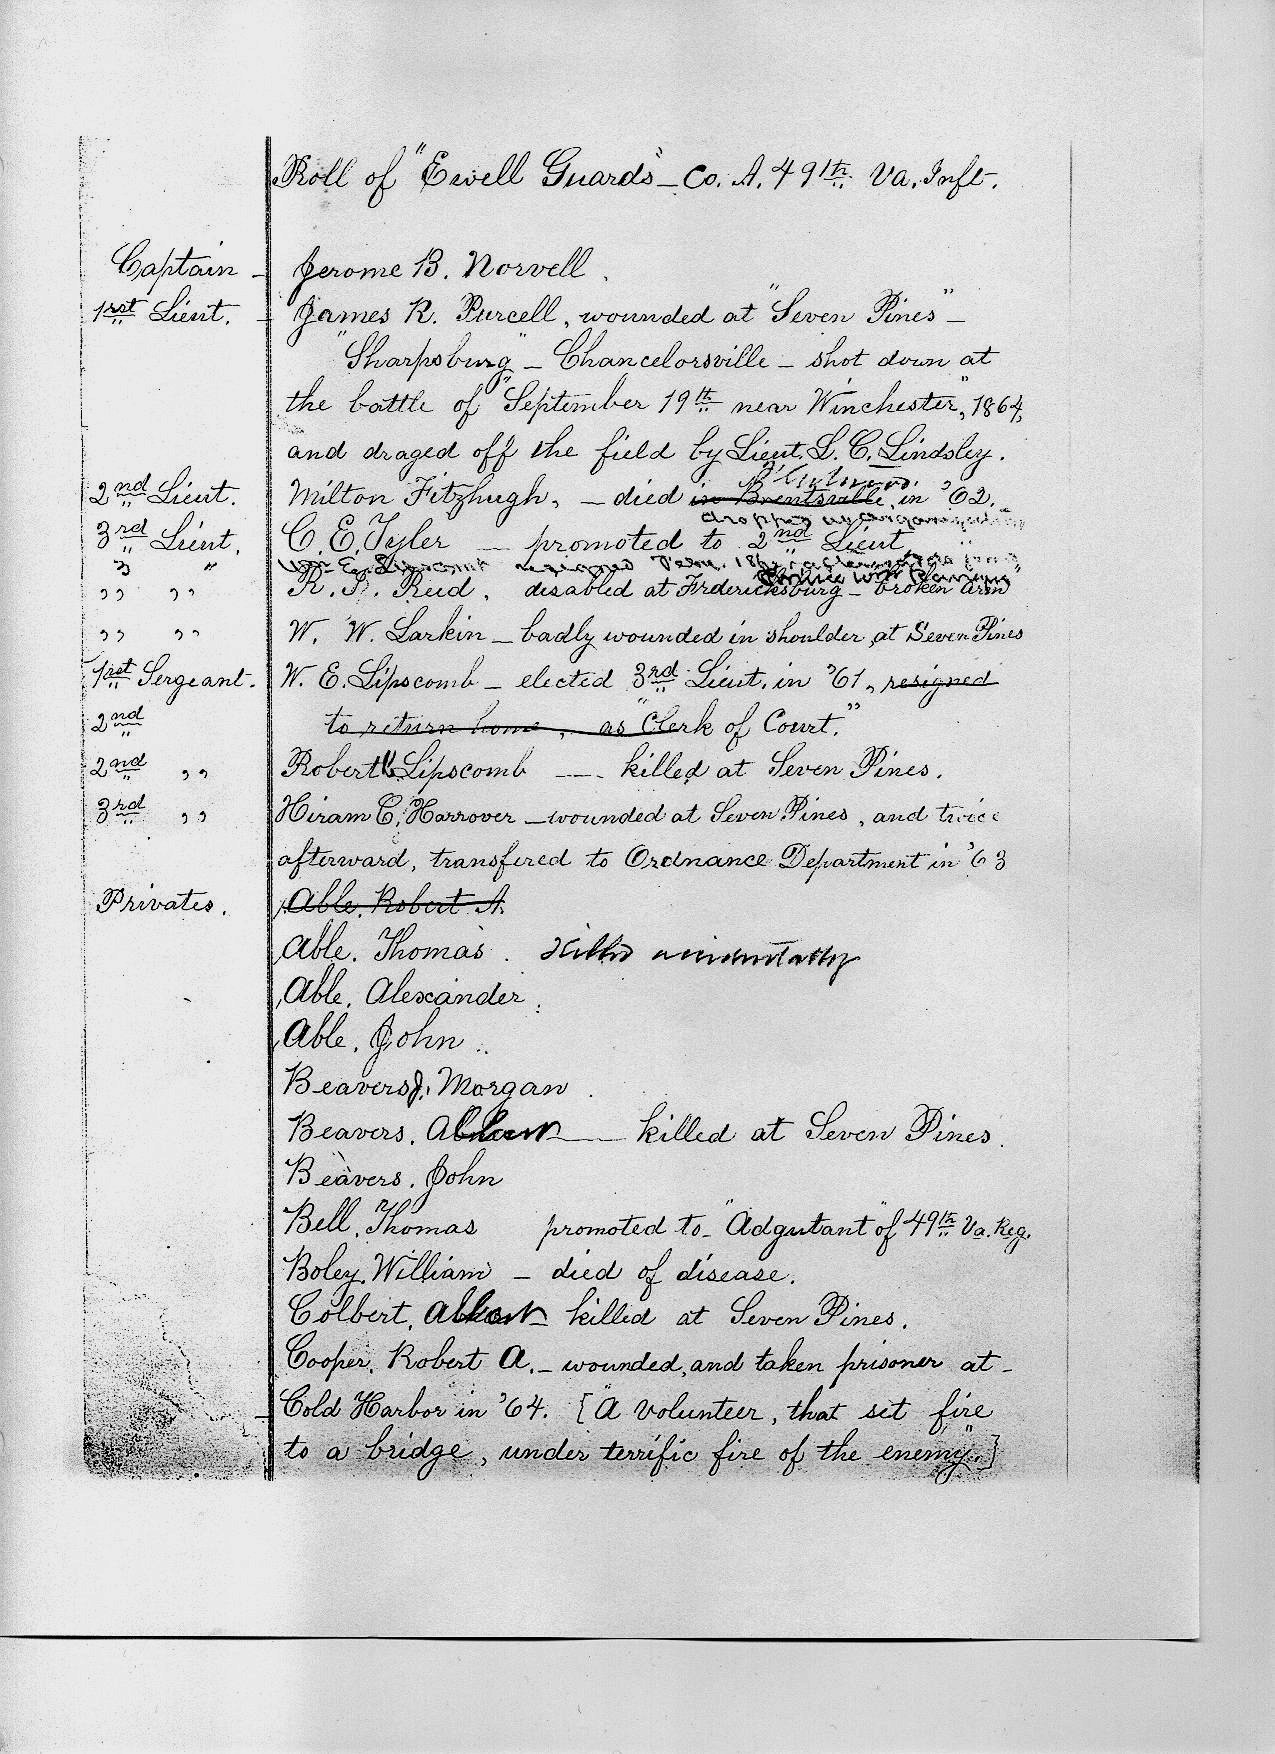 Roll of "Ewell Guards" - Co. A. 49th Va. Inft.
Captain - Jerome B. Norvell.
1rst Lieut. - James R. Purcell, wounded at "Seven Pines" -
"Sharpsburg" - Chancelorsville - shot down at
the battle of "September 19th near Winchester", 1864,
and draged off the field by Lieut. L. C. Lindsley.
2nd Lieut. Milton Fitzhugh, - died in Brentsville, in '62.
dropped at
3rd Lieut. C. E. Tyler - promoted to 2nd Lieut
3 " Wm. E. Lipscomb resigned 186
,, ,, R. P. Reid, disabled at Fredericksburg - broken arm
,, ,, W. W. Larkin - badly wounded in shoulder at Seven Pines
1rst Sergeant. W. E. Lipscomb - elected 3rd Lieut. in '61, resigned
2nd to return home, as "Clerk of Court."
2nd ,, Robert Lipscomb - killed at Seven Pines.
3rd ,, Hiram C. Harrover - wounded at Seven Pines, and twice
afterward, transfered to Ordnance Department in '63
Privates. Able. Robert A.
Able. Thomas. Killed accidentally
Able. Alexander.
Able. John.
Beavers J. Morgan.
Beavers. - killed at Seven Pines.
Beavers. John
Bell. Thomas promoted to - "Adgutant" of 49th Va. Reg.
Boley. William - died of disease.
Colbert. - killed at Seven Pines.
Cooper. Robert A. - wounded, and taken prisoner at -
Cold Harbor in '64. ["A volunteer, that set fire
to a bridge, under terrific fire of the enemy".]